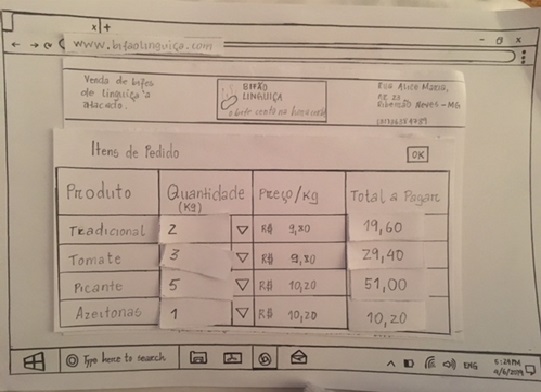 x +
www.bifaolinguiça.com
- x
Venda de bifes
de linguiça's
atacado.
BIFÃO
LINGUIÇA
Rua Alice Maria,
Nº 23
Ribeirão Neves - MG
Itens de Pedido
OK
Produto
Quantidade
(Kg)
Preço/Kg
Total a Pagar
Tradicional 2 R$ 9,80 19,60
Tomate 3 R$ 9,80 29,40
Picante 5 R$ 10,20 51,00
Azeitonas 1 R$ 10,20 10,20
Type here to search
ENG
5:29PM